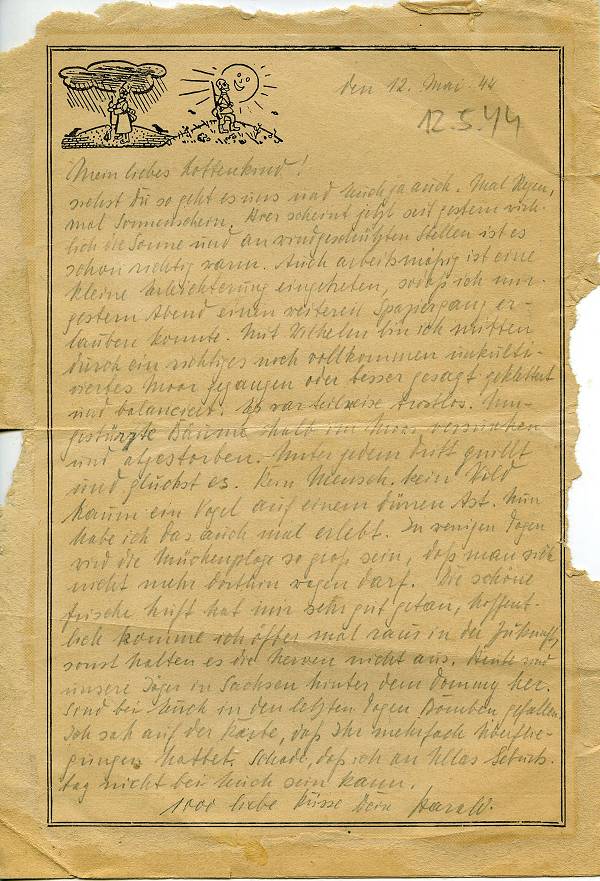 den 12. Mai 44
12.5.44
Mein liebes Lottenkind!
siehst Du so geht es uns und Euch ja auch. Mal Regen,
mal Sonnenschein. Hier scheint jetzt seit gestern wirk-
lich die Sonne und an windgeschützten Stellen ist es
schon richtig warm. Auch arbeitsmäßig ist eine
kleine Erleichterung eingetreten, sodaß ich mir
gestern Abend einen weiteren Spaziergang er-
lauben konnte. Mit Wilhelm bin ich mitten
durch ein richtiges noch vollkommen unkulti-
viertes Moor gegangen oder besser gesagt geklettert
und balanciert. Es war teilweise trostlos. Um-
gestürzte Bäume halb im Moor versunken
und abgestorben. Unter jedem Tritt quillt
und gluckst es. Kein Mensch, kein Wild
kaum ein Vogel auf einem dürren Ast. Nun
habe ich das auch mal erlebt. In wenigen Tagen
wird die Mückenplage so groß sein, daß man sich
nicht mehr dorthin wagen darf. Die schöne
frische Luft hat mir sehr gut getan, hoffent-
lich komme ich öfter mal raus in der Zukunft,
sonst halten es die Nerven nicht aus. Heute sind
unsere Jäger in Sachsen hinter dem Tommy her.
Sind bei Euch in den letzten Tagen Bomben gefallen.
Ich sah auf der Karte, daß Ihr mehrfach Überflie-
gungen hattet. Schade, daß ich an Ullas Geburts-
tag nicht bei Euch sein kann.
1000 liebe Küsse Dein Harald.